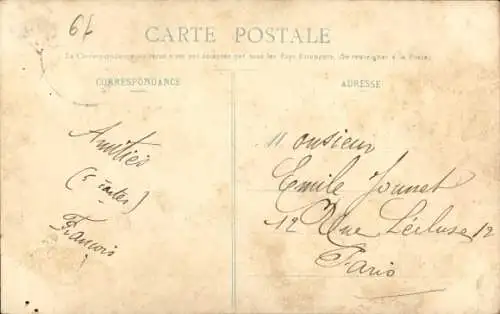 79
CARTE POSTALE
La Correspondance au recto n'est pas acceptée par tous les Pays Etrangers. (Se renseigner à la Poste)
CORRESPONDANCE
ADRESSE
Amitiés
(5 cartes)
François
Monsieur
Emile Jonnet
12 Rue Lécluse 12
Paris